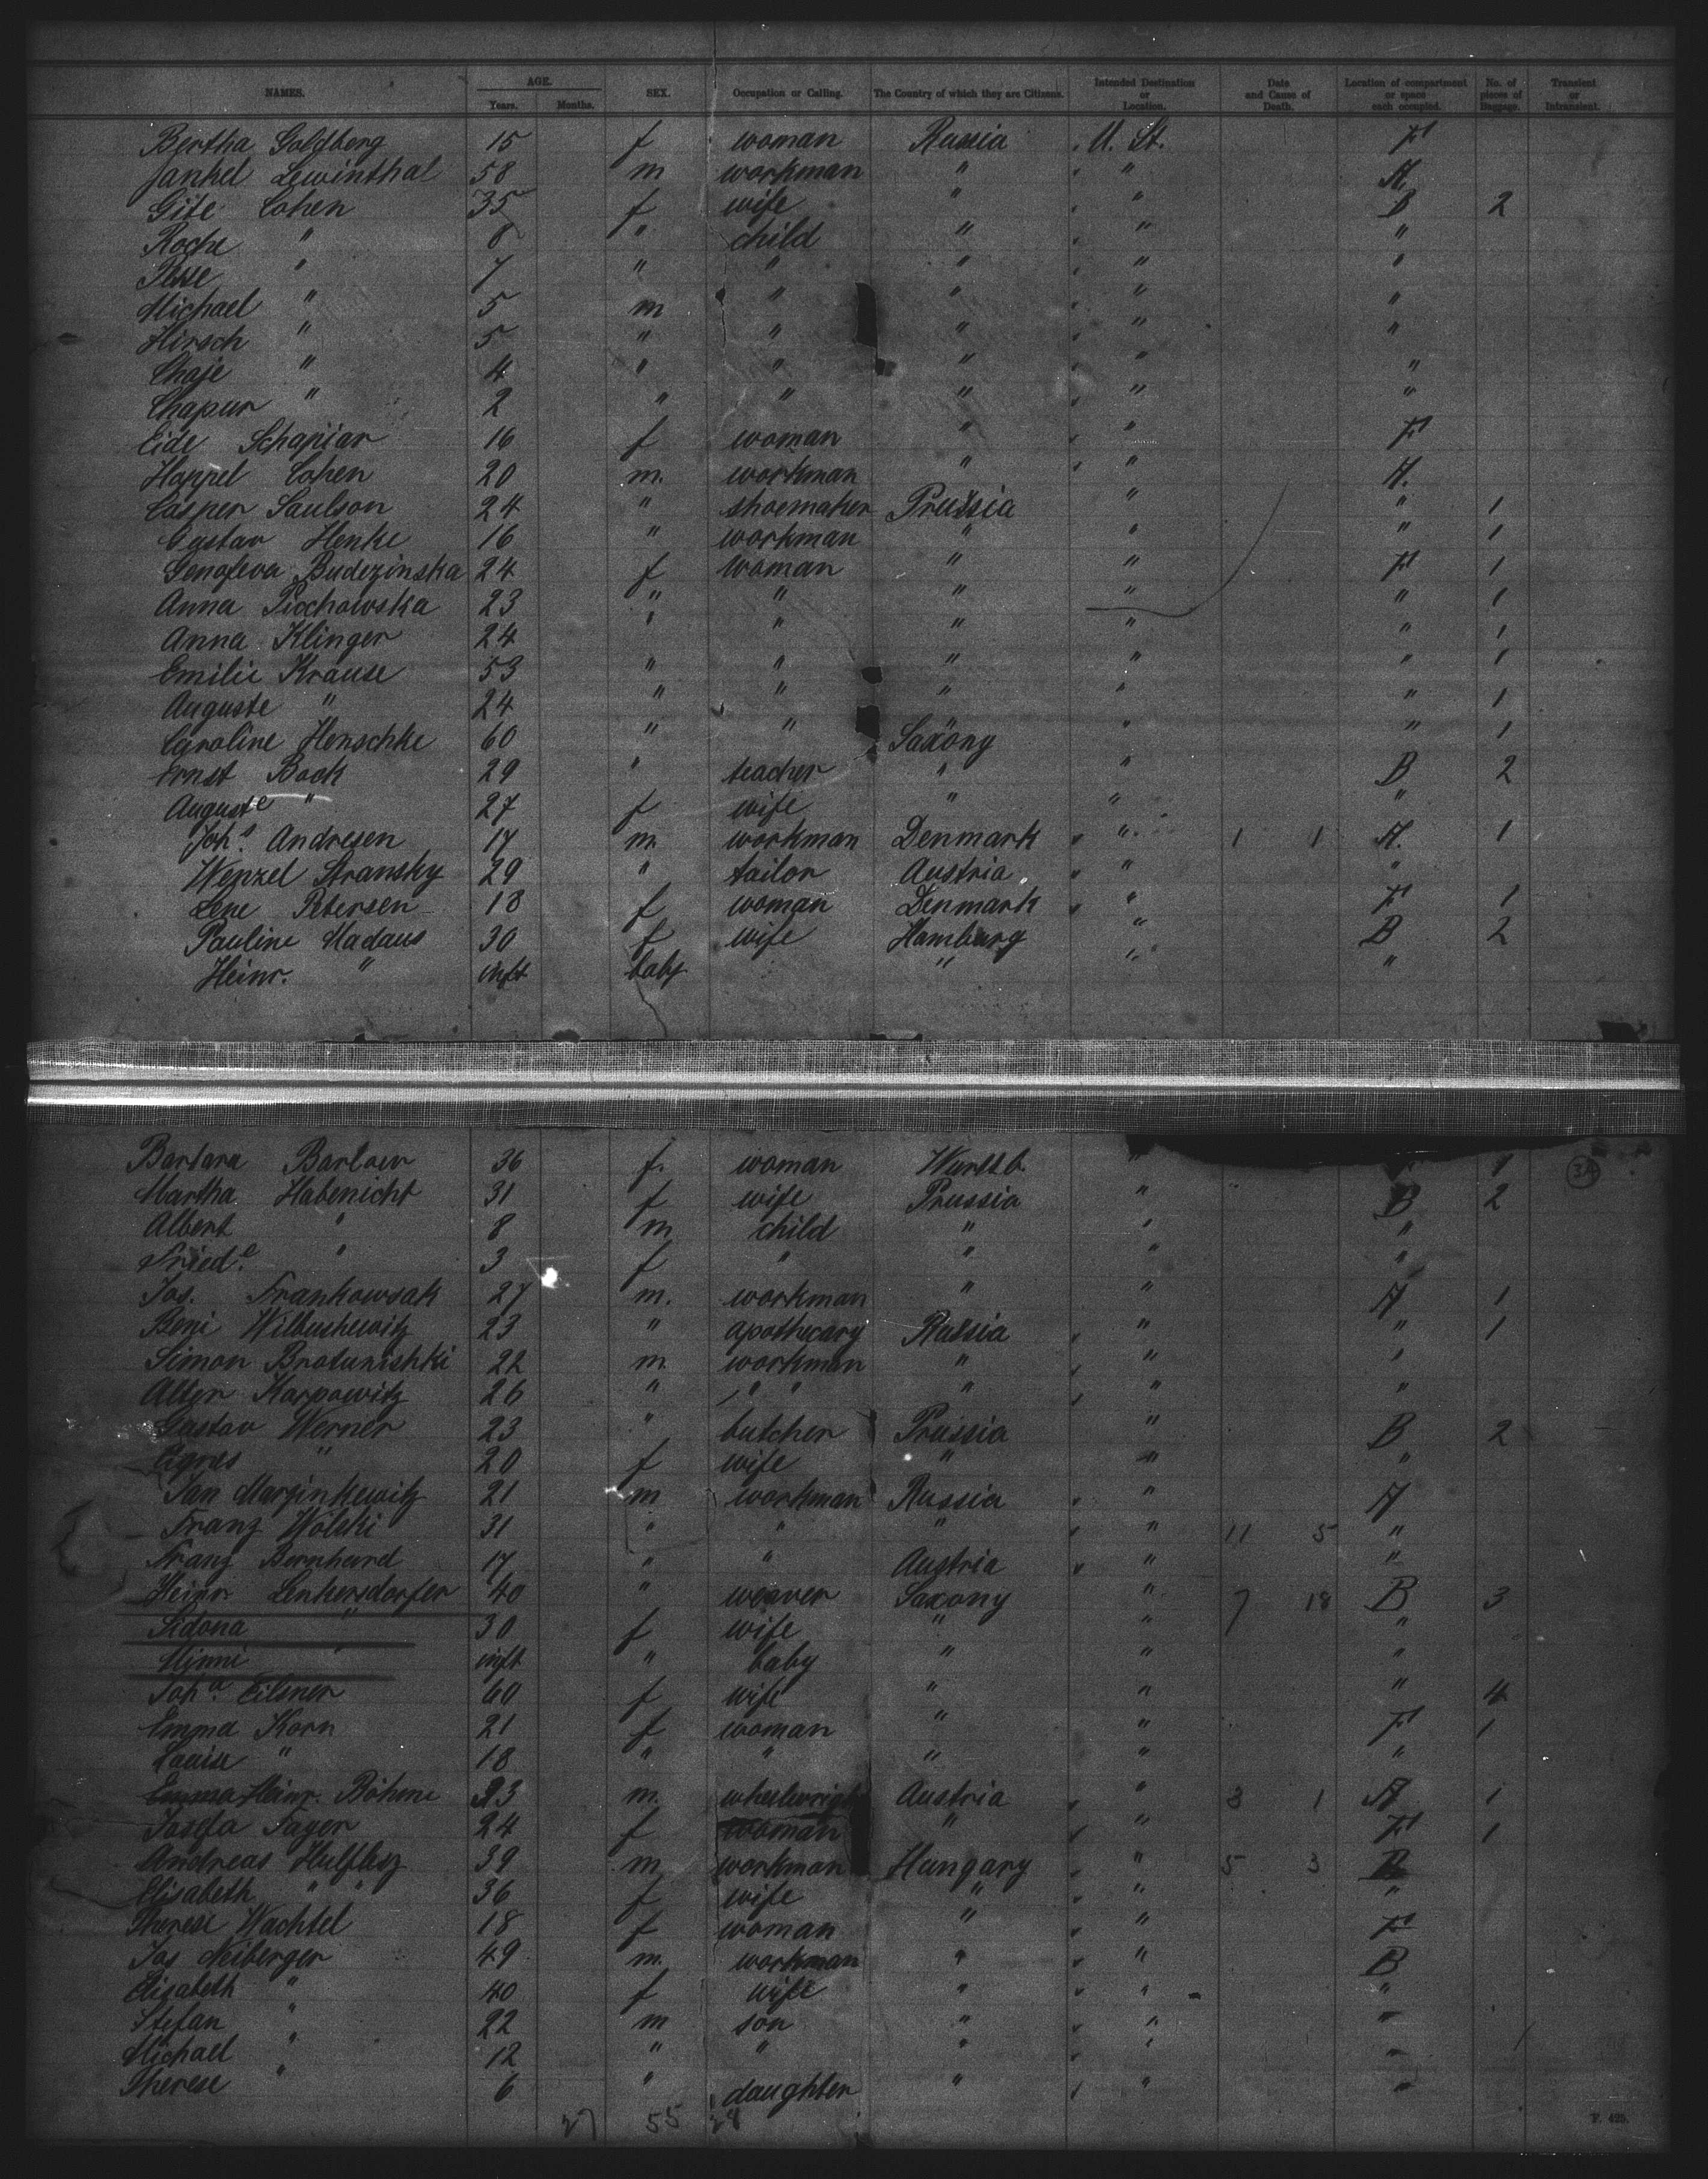 NAMES. AGE. Years. Months. SEX. Occupation or Calling. The Country of which they are Citizens. Intended Destination or Location. Date and Cause of Death. Location of compartment or space each occupied. No. of pieces of Baggage. Transient or Intransient.
Bertha Goldberg 15 f woman Russia U. St. F
Jankel Lewinthal 58 m workman " " A
Gite Cohen 35 f wife " " B 2
Roche " 8 " child " " "
Pesse " 7 " " " " "
Michael " 5 m " " " "
Hirsch " 5 " " " " "
Chaje " 4 " " " " "
Chapur " 2 " " " " "
Eide Schapiar 16 f woman " " F
Hoppel Cohen 20 m. workman " " A.
Casper Saulson 24 " shoemaker Prussia " " 1
Gustav Henke 16 " workman " " " 1
Genofeva Budezinska 24 f woman " " F 1
Anna Piochowska 23 " " " " " 1
Anna Klinger 24 " " " " " 1
Emilie Krause 53 " " " " " 1
Auguste " 24 " " " " " 1
Caroline Henschke 60 " " Saxony " " 1
Ernst Bock 29 " teacher " " B 2
Auguste " 27 f wife " " "
Johs. Andresen 17 m. workman Denmark " 1 1 A. 1
Wenzel Stransky 29 " tailor Austria " "
Lene Petersen 18 f woman Denmark " F 1
Pauline Madaus 30 f wife Hamburg " B 2
Heinr. " inft baby " " "
Barbara Barlow 36 f. woman Wurtb. " 1
34
Martha Habenicht 31 f wife Prussia " B 2
Albert " 8 m child " " "
Fried.e " 3 f " " " "
Jos. Frankowsak 27 m. workman " " A 1
Beni Wilbushewitz 23 " apothecary Russia " " 1
Simon Bratunishki 22 m. workman " " "
Alter Karpowitz 26 " " " " " "
Gustav Werner 23 " butcher Prussia " B 2
Agnes " 20 f wife " " "
Jan Marzinkewitz 21 m workman Russia " A
Franz Wolski 31 " " " " 11 5 "
Franz Bernhard 17 " " Austria " "
Heinr. Lenkersdorfer 40 " weaver Saxony " 7 18 B 3
Sidona " 30 f wife " " "
Minni " inft " baby " " "
Joha. Eilsner 60 f wife " " " 4
Emma Korn 21 f woman " " F 1
Louise " 18 " " " " "
Emma Heinr. Böhme 23 m. wheelwright Austria " 3 1 A 1
Josefa Fager 24 f woman " " F 1
Andreas Hulflesz 39 m workman Hungary " 5 3 B
Elisabeth " " 36 f wife " " "
Therese Wachtel 18 f woman " " F
Jos Neiberger 49 m. workman " " B
Elisabeth " 40 f wife " " "
Stefan " 22 m son " " "
Michael " 12 " " " " "
Therese " 6 " daughter " " "
27 55 28
F. 425.